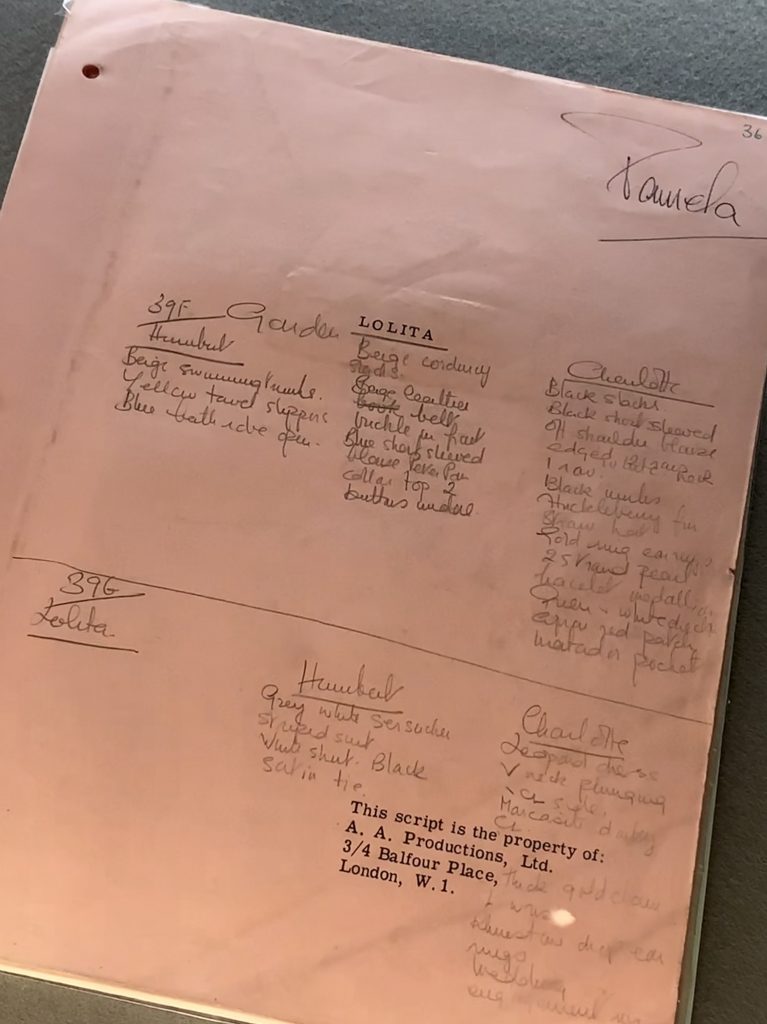 36
Pamela
39F Garden
LOLITA
Humbert
Beige swimming trunks.
Yellow towel slippers
Blue bath robe open.
Beige corduroy
slacks.
Beige leather
belt
buckle in front
Blue short sleeved
blouse Peter Pan
collar top 2
buttons undone.
Charlotte
Black slacks
Black short sleeved
off shoulder blouse
edged
Black mules
Huckleberry Fin
straw hat
Gold ring earrings
2 strand pearl
bracelet medallion
Green + white check
apron red patch
matador pocket
39G
Lolita.
Humbert
Grey white sersucker
striped suit
White shirt. Black
satin tie.
Charlotte
Leopard dress
V neck plunging
Marcasite
This script is the property of:
A. A. Productions, Ltd.
3/4 Balfour Place,
London, W. 1.
Thick gold chain
drop ear
rings
Wedding